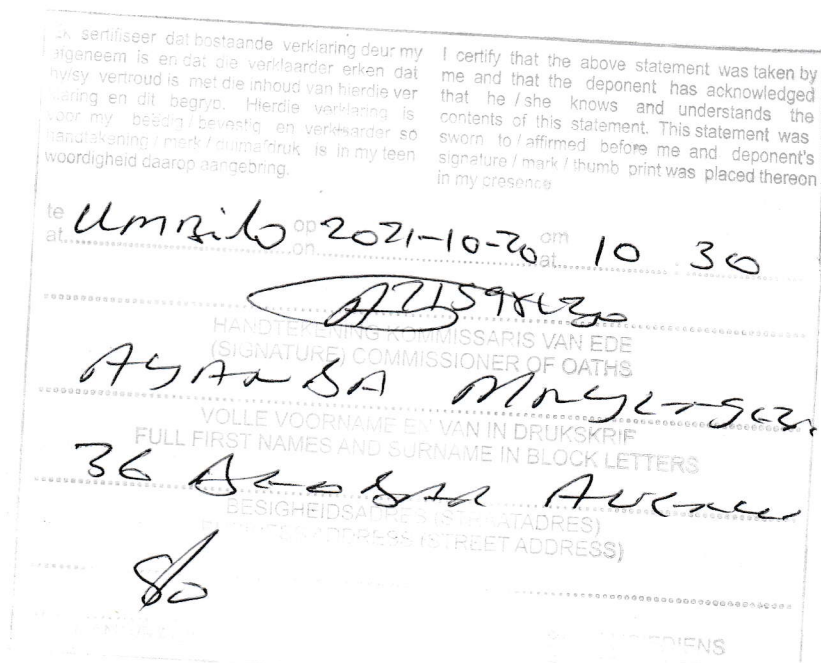 sertifiseer dat bostaande verklaring deur my
afgeneem is en dat die verklaarder erken dat
hy/sy vertroud is met die inhoud van hierdie ver
klaring en dit begryp. Hierdie verklaring is
voor my beëdig / bevestig en verklaarder so
handtekening / merk / duimafdruk is in my teen
woordigheid daarop aangebring.
I certify that the above statement was taken by
me and that the deponent has acknowledged
that he / she knows and understands the
contents of this statement. This statement was
sworn to / affirmed before me and deponent's
signature / mark / thumb print was placed thereon
in my presence
te op om
at Umbilo on 2021-10-20 at 10 30
HANDTEKENING KOMMISSARIS VAN EDE
(SIGNATURE) COMMISSIONER OF OATHS
VOLLE VOORNAME EN VAN IN DRUKSKRIF
FULL FIRST NAMES AND SURNAME IN BLOCK LETTERS
36
BESIGHEIDSADRES (STRAATADRES)
BUSINESS ADDRESS (STREET ADDRESS)